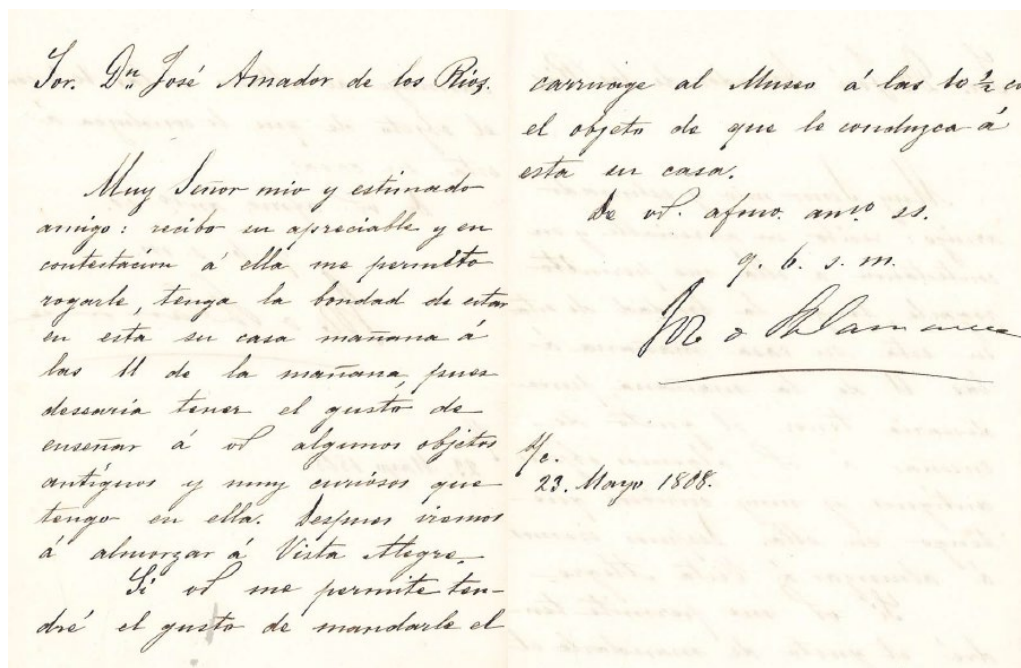 Sor. Dn. José Amador de los Rios.
Muy Señor mio y estimado
amigo: recibo su apreciable y en
contestacion á ella me permito
rogarle, tenga la bondad de estar
en esta su casa mañana á
las 11 de la mañana, pues
desearia tener el gusto de
enseñar á vd algunos objetos
antiguos y muy curiosos que
tengo en ella. Despues iremos
á almorzar á Vista Alegre.
Si vd me permite ten-
dré el gusto de mandarle el
carruage al Museo á las 10 ½ co
el objeto de que le conduzca á
esta su casa.
De vd. afmo. amo ss.
q. b. s. m.
Salamanca
S/c.
23. Mayo 1868.